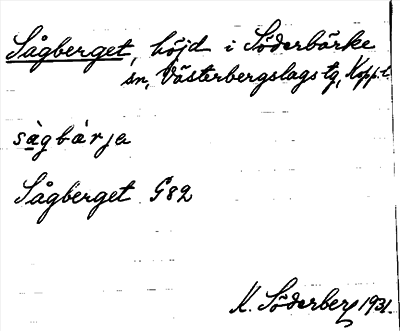 Sågberget, höjd i Söderbärke
sn, Västerbergslags tg, Kopp. l.
sàgbàrja
Sågberget G82
K. Söderberg 1931.